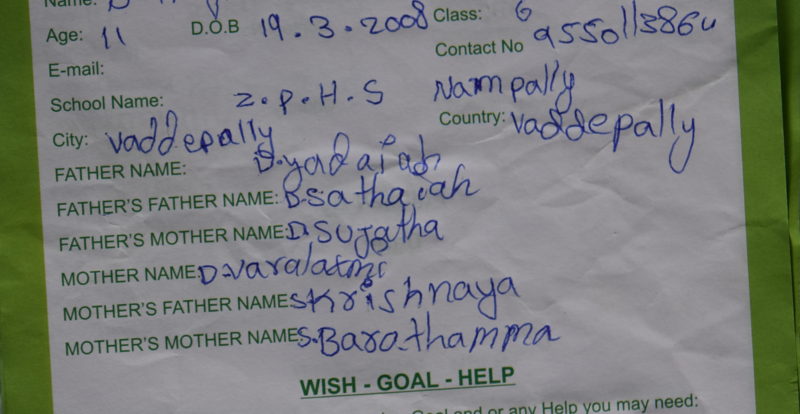 Name:
Age: 11 D.O.B 19.3.2008 Class: 6
Contact No 9550113864
E-mail:
School Name: Z.P.H.S Nampally
City: vaddepally Country: vaddepally
FATHER NAME: D.yadaiah
FATHER'S FATHER NAME: D.sathaiah
FATHER'S MOTHER NAME: D.Sujatha
MOTHER NAME: D.varalatmi
MOTHER'S FATHER NAME: S.Krishnaya
MOTHER'S MOTHER NAME: S.Barathamma
WISH - GOAL - HELP
Goal and or any Help you may need: